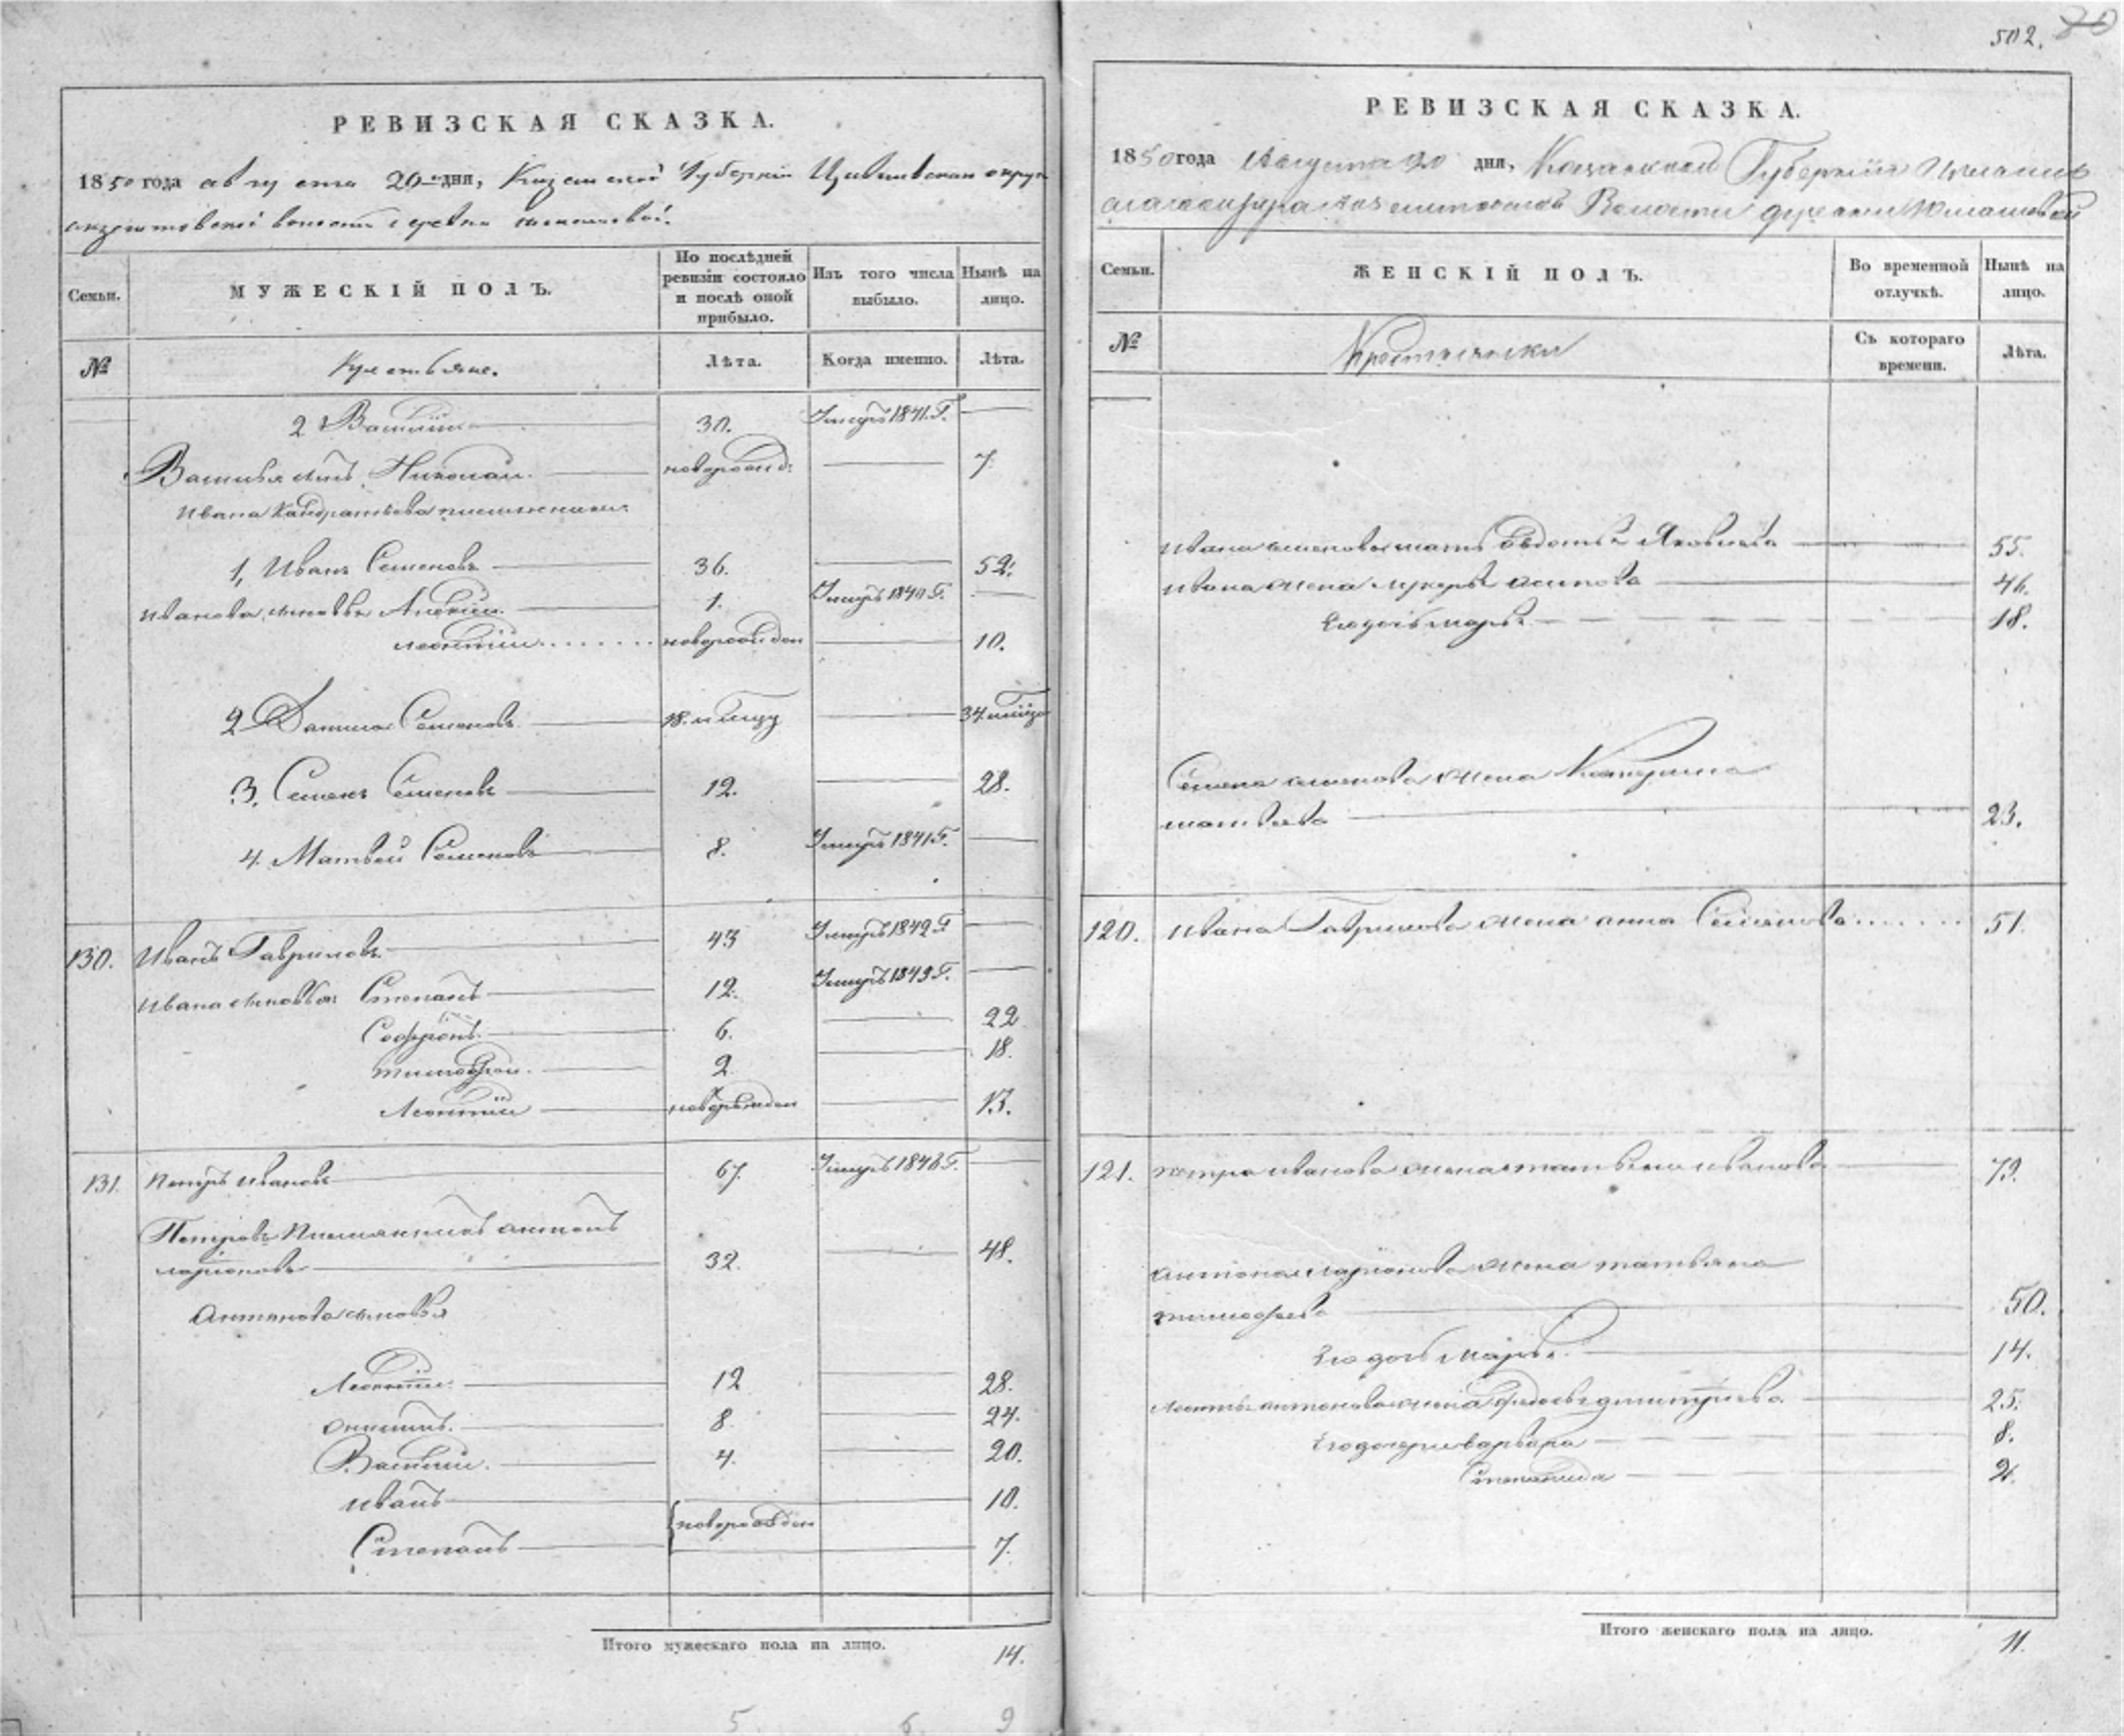 502.
РЕВИЗСКАЯ СКАЗКА.
1850 года августа 20 дня, Казанской Губернии Цивильскаго округа
волости деревни
Семьи.
МУЖЕСКІЙ ПОЛЪ.
По послѣдней ревизіи состояло и послѣ оной прибыло.
Изъ того числа выбыло.
Нынѣ на лицо.
№
Крестьяне.
Лѣта.
Когда именно.
Лѣта.
2 Василий 30. Умеръ 1841 Г.
Васильа сынъ Николай. новорожд: 7.
Ивана Кондратьева племянники
1, Иванъ Семеновъ 36. 52.
Иванова сыновья Алексей. 1. Умеръ 1840 Г.
Леонтий новорожден 10.
2 Данила Семеновъ 18. 34.
3. Семенъ Семеновъ 12. 28.
4. Матвей Семеновъ 8. Умеръ 1841 Г.
130. Иванъ Гавриловъ 43 Умеръ 1842 Г
Ивана сыновья: Степанъ 12. Умеръ 1843 Г.
Софронъ. 6. 22
Тимофей. 2. 18.
Леонтий новорожден 13.
131. Петръ Ивановъ 67. Умеръ 1846 Г.
Петровъ Племянникъ антонъ
ларионовъ 32. 48.
Антонова сыновья
Леонтий 12 28.
Никита. 8. 24.
Василий. 4. 20.
Иванъ 10.
новорожден
Степанъ 7.
Итого мужескаго пола на лицо. 14.
5 6. 9
РЕВИЗСКАЯ СКАЗКА.
1850 года Августа 20 дня, Казанской Губернии
Волости деревни
Семьи.
ЖЕНСКІЙ ПОЛЪ.
Во временной отлучкѣ.
Нынѣ на лицо.
№
Крестьянки
Съ котораго времени.
Лѣта.
Ивана семенова мать Евдотья Яковлева 55.
Ивана жена лукерья осипова 46.
Его дочь марья 18.
Семена семенова жена Катерина
матвеева 23.
120. Ивана Гаврилова жена анна Семенова 51.
121. петра иванова жена матвена иванова 73.
антона ларионова жена татьяна
тимофеева 50.
Его дочь Марья 14.
Леонтья антонова жена федосья дмитриева 25.
Его дочери варвара 8.
Степанида 2.
Итого женскаго пола на лицо. 11.